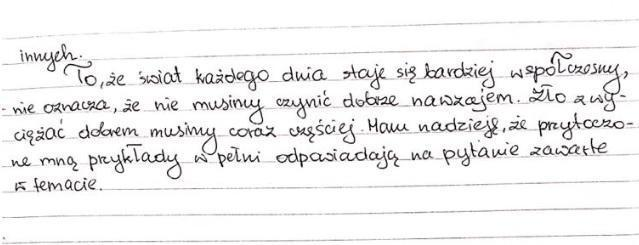 innych.
To, że świat każdego dnia staje się bardziej współczesny,
nie oznacza, że nie musimy czynić dobrze nawzajem. Zło zwy-
ciężać dobrem musimy coraz częściej. Mam nadzieję, że przytoczo-
ne mną przykłady w pełni odpowiadają na pytanie zawarte
w temacie.